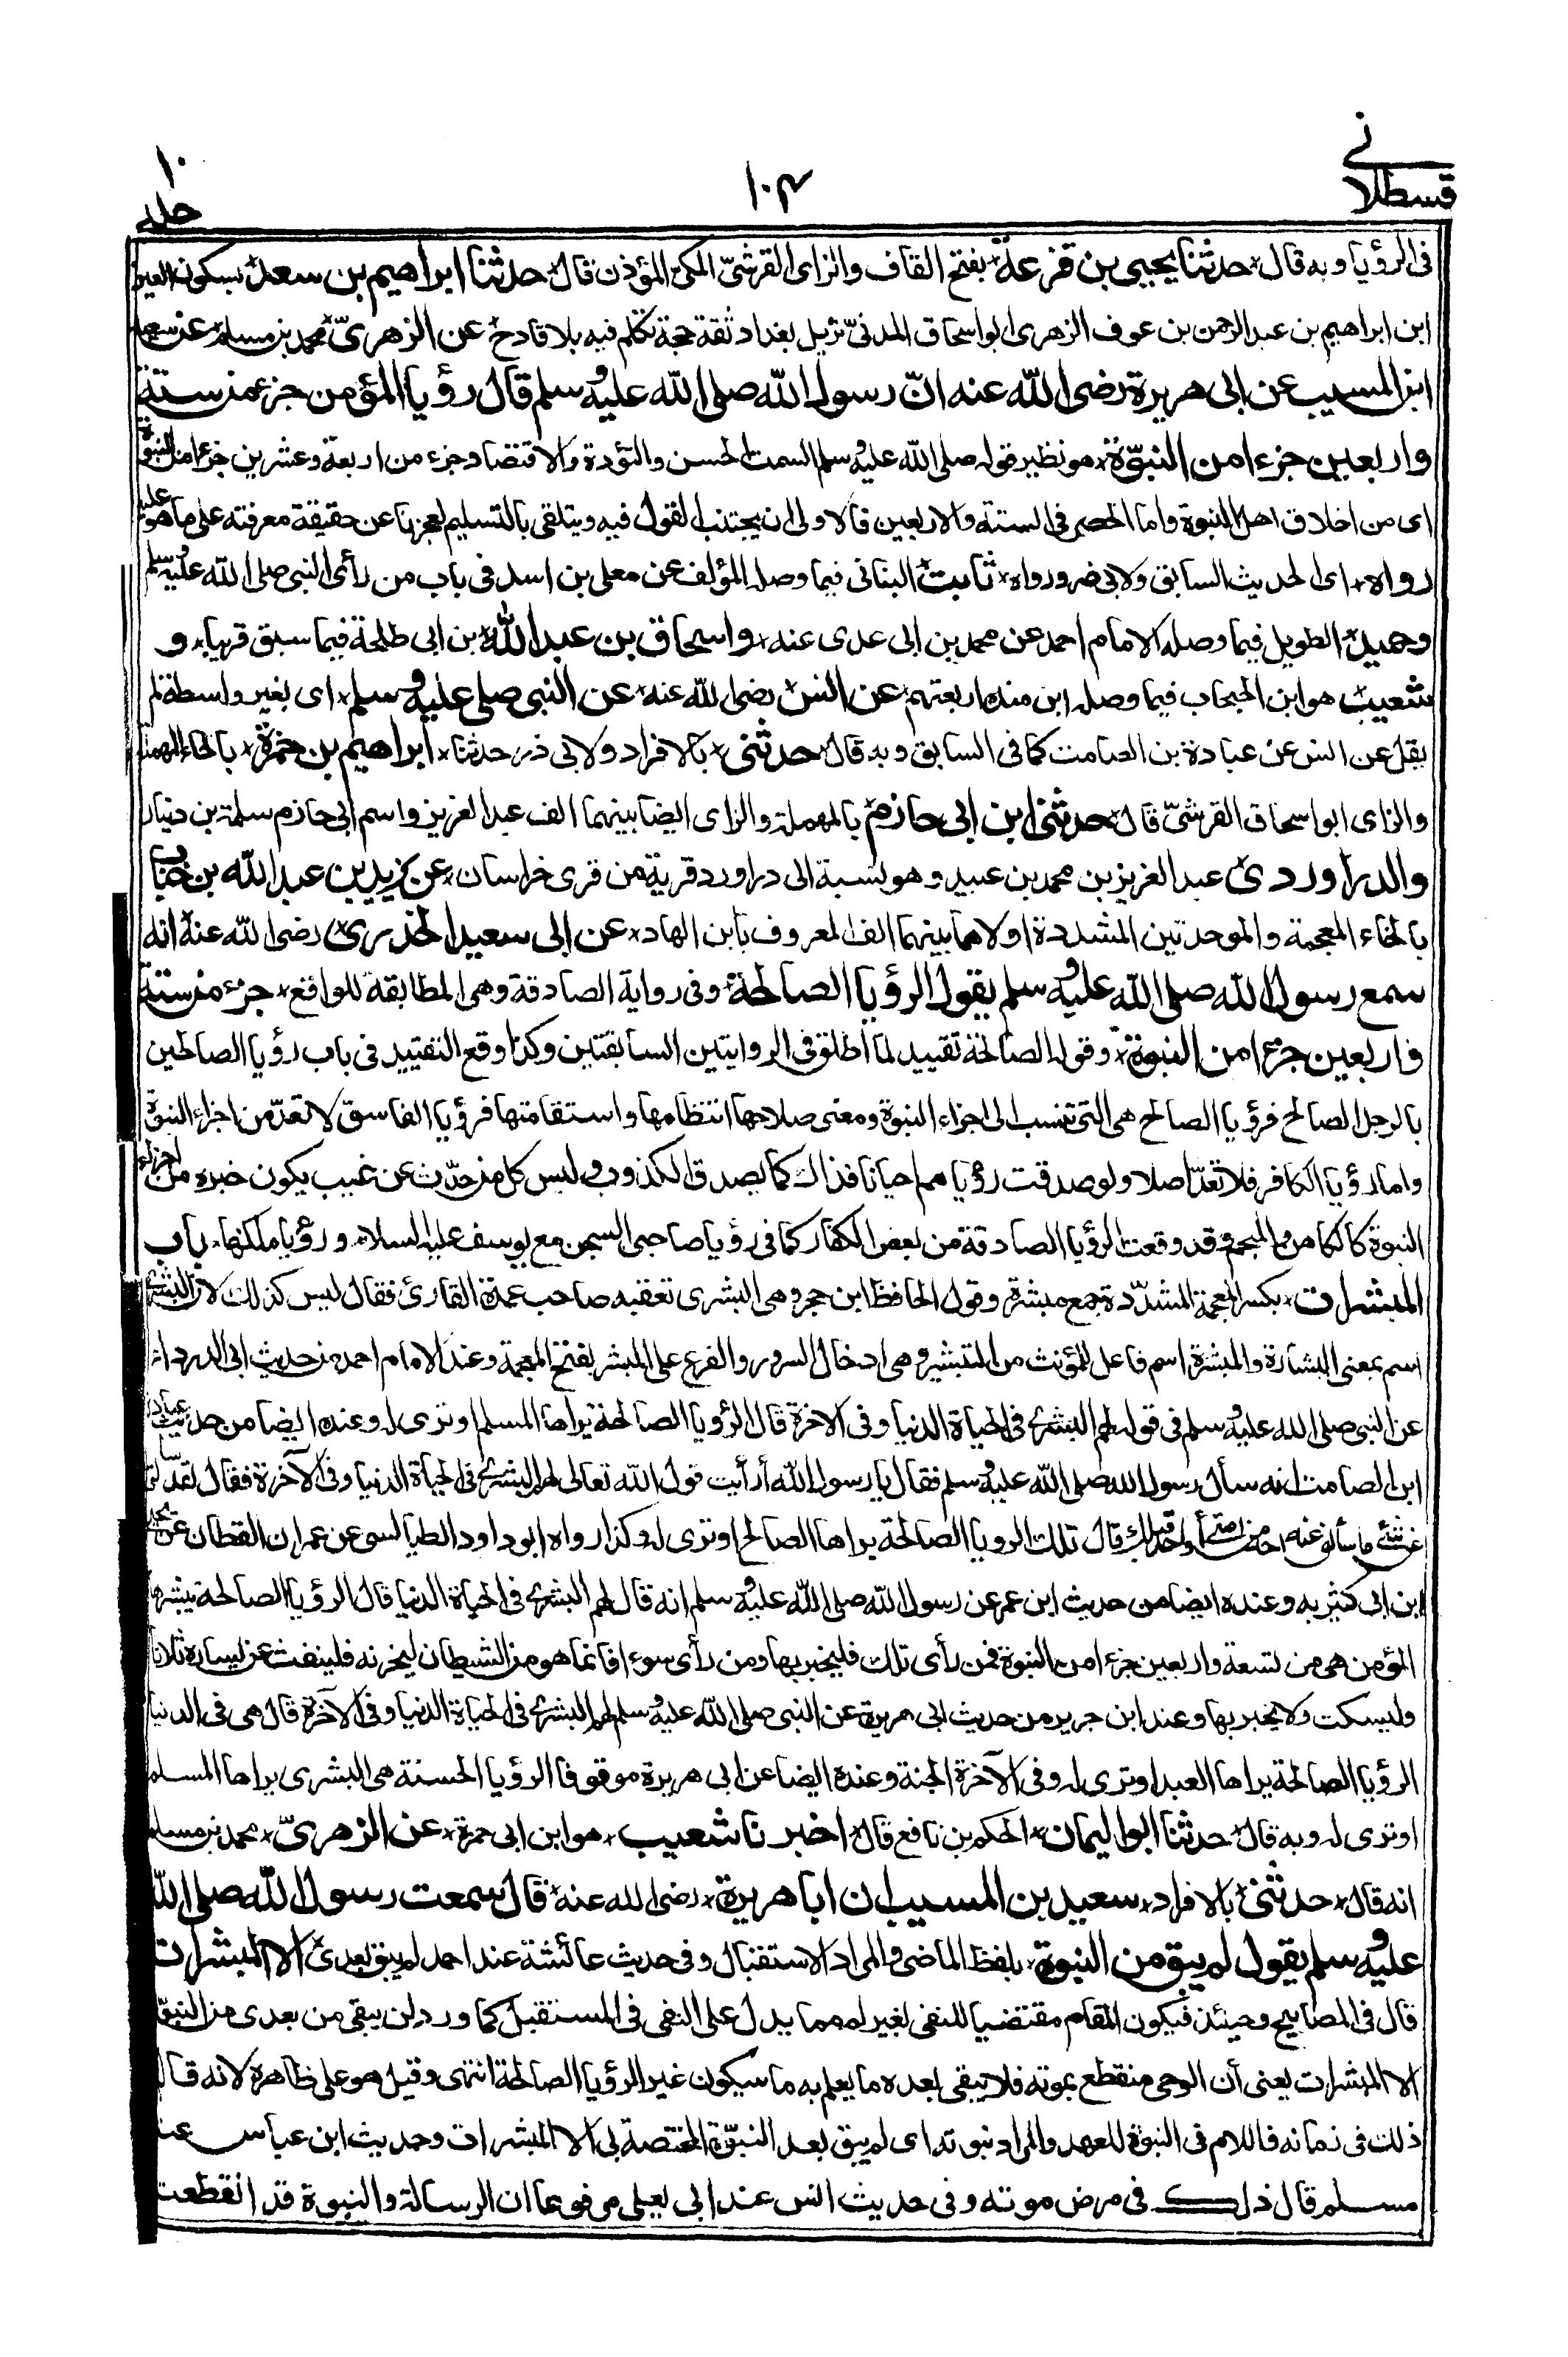 قسطلانى
١٠٤
جلد ١٠
فى الرؤيا وبه قال حدثنا يحيى بن قزعة بفتح القاف والزاى القرشىّ المكى المؤذن قال حدثنا ابراهيم بن سعد بسكون العين
ابن ابراهيم بن عبد الرحمن بن عوف الزهرى ابو اسحاق المدنىّ نزيل بغداد ثقة حجة تكلم فيه بلا قادح عن الزهرىّ محمد بن مسلم عن سعيد
ابن المسيب عن ابى هريرة رضى الله عنه انّ رسول الله صلى الله عليه وسلم قال رؤيا المؤمن جزء من ستة
واربعين جزءا من النبوّة هو نظير قوله صلى الله عليه وسلم السمت الحسن والتؤدة والاقتصاد جزء من اربعة وعشرين جزءا من النبوة
اى من اخلاق اهل النبوة واما الحصر فى الستة والاربعين فالاولى ان يجتنب القول فيه ويتلقى بالتسليم لعجزنا عن حقيقة معرفته على ما هو عليه
رواه اى الحديث السابق ولابى ذر ورواه ثابت البنانى فيما وصله المؤلف عن معلى بن اسد فى باب من رأى النبى صلى الله عليه وسلم
وحميد الطويل فيما وصله الامام احمد عن محمد بن ابى عدى عنه واسحاق بن عبد الله بن ابى طلحة فيما سبق قريبا و
شعيب هو ابن الحبحاب فيما وصله ابن منده اربعتهم عن انس رضى الله عنه عن النبى صلى عليه وسلم اى بغير واسطة لم
يقل عن انس عن عبادة بن الصامت كما فى السابق وبه قال حدثنى بالافراد ولابى ذر حدثنا ابراهيم بن حمزة بالحاء المهملة
والزاى ابو اسحاق القرشىّ قال حدثنى ابن ابى حازم بالمهملة والزاى ايضا بينهما الف عبد العزيز واسم ابى حازم سلمة بن دينار
والدراوردى عبد العزيز بن محمد بن عبيد وهو نسبة الى دراورد قرية من قرى خراسان عن يزيد بن عبد الله بن خباب
بالخاء المعجمة والموحدتين المشددة اولاهما بينهما الف المعروف بابن الهاد عن ابى سعيد الخدرى رضى الله عنه انه
سمع رسول الله صلى الله عليه وسلم يقول الرؤيا الصالحة وفى رواية الصادقة وهى المطابقة للواقع جزء من ستة
واربعين جزءا من النبوة وقوله الصالحة تقييد لما اطلق فى الروايتين السابقتين وكذا وقع التقييد فى باب رؤيا الصالحين
بالرجل الصالح فرؤيا الصالح هى التى تنسب الى اجزاء النبوة ومعنى صلاحها انتظامها واستقامتها فرؤيا الفاسق لا تعدّ من اجزاء النبوة
واما رؤيا الكافر فلا تعدّ اصلا ولو صدقت رؤياهم احيانا فذاك كما يصدق الكذوب وليس كل من حدّث عن غيب يكون خبره من اجزاء
النبوة كالكاهن والمنجم وقد وقعت الرؤيا الصادقة من بعض الكفار كما فى رؤيا صاحبى السجن مع يوسف عليه السلام ورؤيا ملكهما باب
المبشرات بكسر المعجمة المشدّدة جمع مبشرة وقول الحافظ ابن حجر وهى البشرى تعقبه صاحب عمدة القارئ فقال ليس كذلك لان البشرى
اسم بمعنى البشارة والمبشرة اسم فاعل للمؤنث من التبشير وهى ادخال السرور والفرح على المبشر بفتح المعجمة وعند الامام احمد من حديث ابى الدرداء
عن النبى صلى الله عليه وسلم فى قوله لهم البشرى فى الحياة الدنيا وفى الاخرة قال الرؤيا الصالحة يراها المسلم او ترى له وعنده ايضا من حديث عبادة
ابن الصامت انه سأل رسول الله صلى الله عليه وسلم فقال يا رسول الله أرأيت قول الله تعالى لهم البشرى فى الحياة الدنيا وفى الآخرة فقال لقد سألتنى
عن شئ ما سألنى عنه احد من امتى أو احد قبلك قال تلك الرويا الصالحة يراها الصالح او ترى له وكذا رواه ابو داود الطيالسى عن عمران القطان عن يحيى
ابن ابى كثير به وعنده ايضا من حديث ابن عمر عن رسول الله صلى الله عليه وسلم انه قال لهم البشرى فى الحياة الدنيا قال الرؤيا الصالحة يبشرها
المؤمن هى من تسعة واربعين جزءا من النبوة فمن رأى تلك فليخبر بها ومن رأى سوءا فانما هو من الشيطان ليحزنه فلينفث عن يساره ثلاثا
وليسكت ولا يخبر بها وعند ابن جرير من حديث ابى هريرة عن النبى صلى الله عليه وسلم لهم البشرى فى الحياة الدنيا وفى الآخرة قال هى فى الدنيا
الرؤيا الصالحة يراها العبد او ترى له وفى الآخرة الجنة وعنده ايضا عن ابى هريرة موقوفا الرؤيا الحسنة هى البشرى يراها المسلم
او ترى له وبه قال حدثنا ابو اليمان الحكم بن نافع قال اخبرنا شعيب هو ابن ابى حمزة عن الزهرىّ محمد بن مسلم
انه قال حدثنى بالافراد سعيد بن المسيب ان ابا هريرة رضى الله عنه قال سمعت رسول الله صلى الله
عليه وسلم يقول لم يبق من النبوة بلفظ الماضى والمراد الاستقبال وفى حديث عائشة عند احمد لم يبق بعدى الا المبشرات
قال فى المصابيح وحينئذ فيكون المقام مقتضيا للنفى لغير لم مما يدل على النفى فى المستقبل كما ورد لن يبقى من بعدى من النبوّة
الا المبشرات يعنى أن الوحى منقطع بموته فلا يبقى بعده ما يعلم به ما سيكون غير الرؤيا الصالحة انتهى وقيل هو على ظاهره لانه قال
ذلك فى زمانه فاللام فى النبوة للعهد والمراد نبوته اى لم يبق بعد النبوّة المختصة بى الا المبشرات وحديث ابن عباس عند
مسلم قال ذلك فى مرض موته وفى حديث انس عند ابى يعلى مرفوعا ان الرسالة والنبوة قد انقطعت